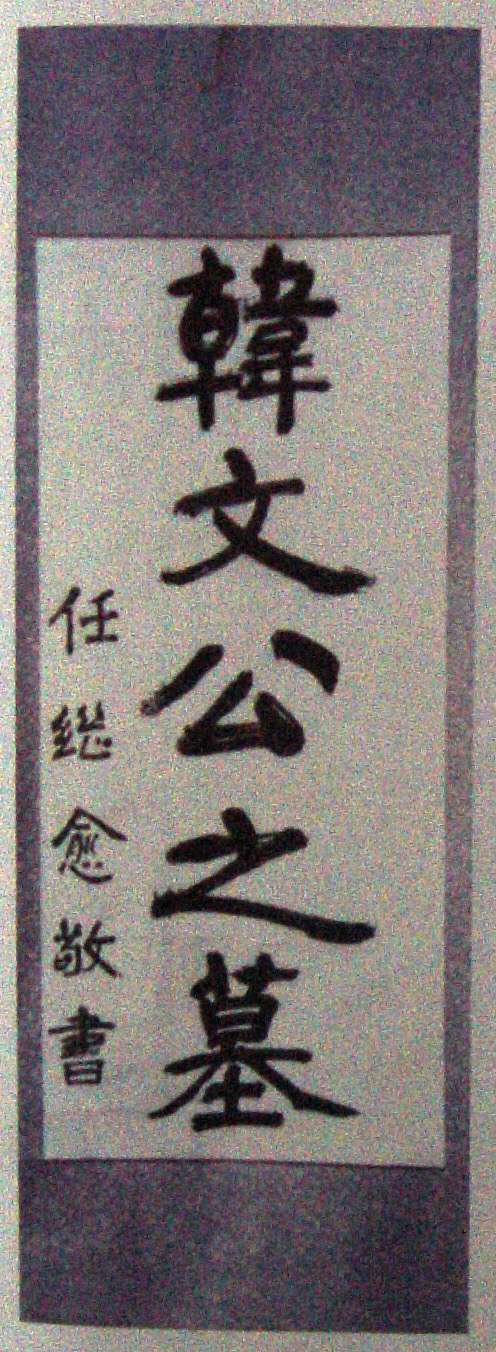 韓文公之墓
任継愈敬書